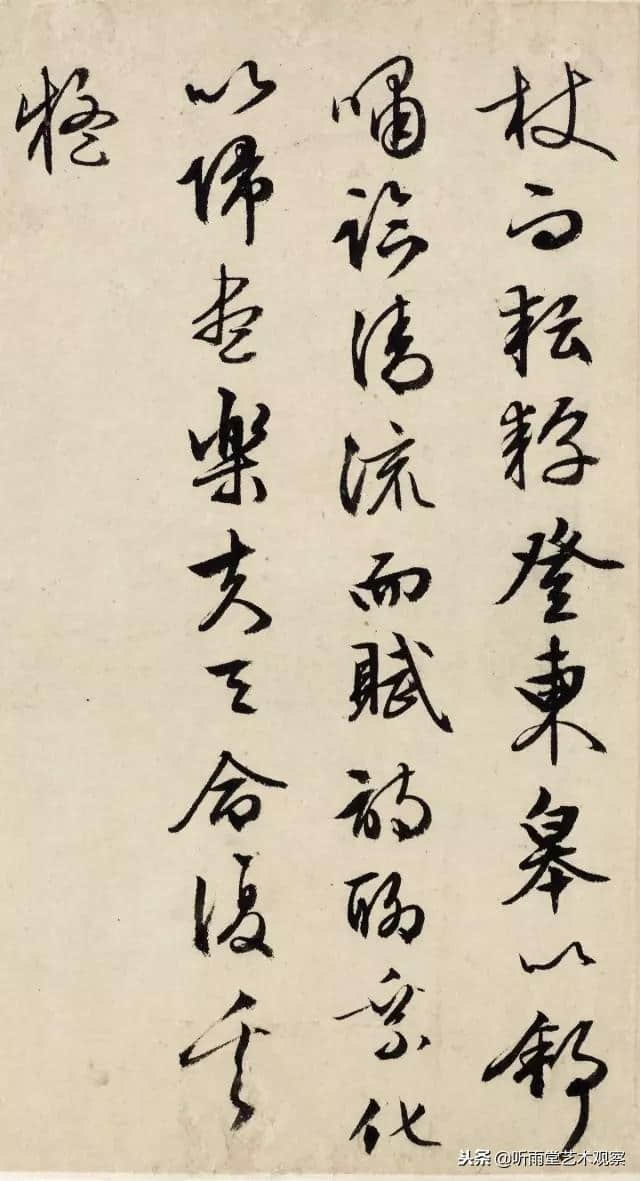 杖而耘耔登東皋以舒
嘯臨清流而賦詩聊乘化
以歸盡樂夫天命復奚
疑
头条 @听雨堂艺术观察